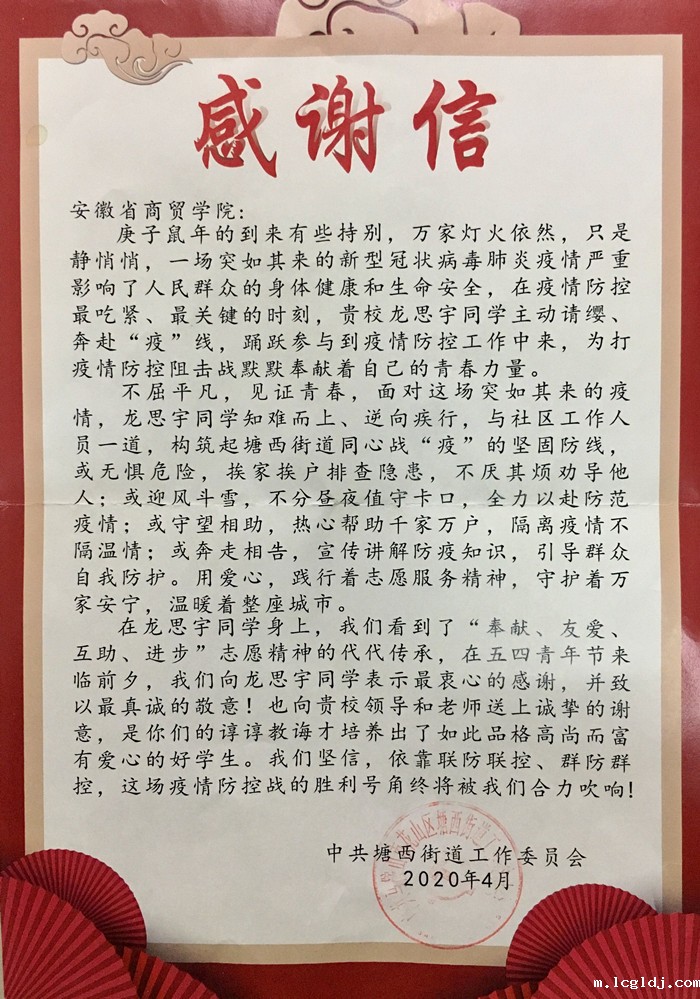 感谢信
安徽省商贸学院：
庚子鼠年的到来有些持别，万家灯火依然，只是
静悄悄，一场突如其来的新型冠状病毒肺炎疫情严重
影响了人民群众的身体健康和生命安全，在疫情防控
最吃紧、最关键的时刻，贵校龙思宇同学主动请缨、
奔赴“疫”线，踊跃参与到疫情防控工作中来，为打
疫情防控阻击战默默奉献着自己的青春力量。
不屈平凡，见证青春，面对这场突如其来的疫
情，龙思宇同学知难而上、逆向疾行，与社区工作人
员一道，构筑起塘西街道同心战“疫”的坚固防线，
或无惧危险，挨家挨户排查隐患，不厌其烦劝导他
人；或迎风斗雪，不分昼夜值守卡口，全力以赴防范
疫情；或守望相助，热心帮助千家万户，隔离疫情不
隔温情；或奔走相告，宣传讲解防疫知识，引导群众
自我防护。用爱心，践行着志愿服务精神，守护着万
家安宁，温暖着整座城市。
在龙思宇同学身上，我们看到了“奉献、友爱、
互助、进步”志愿精神的代代传承，在五四青年节来
临前夕，我们向龙思宇同学表示最衷心的感谢，并致
以最真诚的敬意！也向贵校领导和老师送上诚挚的谢
意，是你们的谆谆教诲才培养出了如此品格高尚而富
有爱心的好学生。我们坚信，依靠联防联控、群防群
控，这场疫情防控战的胜利号角终将被我们合力吹响！
中共塘西街道工作委员会
2020年4月
m.lcgldj.com